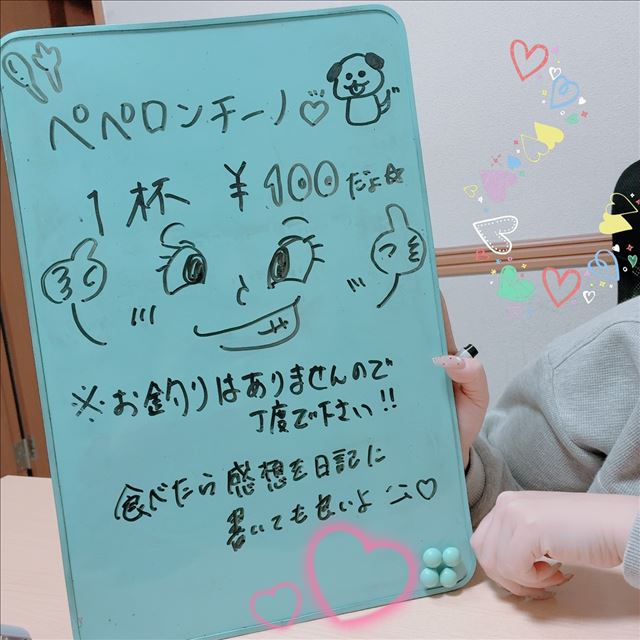 ペペロンチーノ♡
1杯 ¥100だよ☆
※お釣りはありませんので
丁度で下さい!!
食べたら感想を日記に
書いても良いよ♡